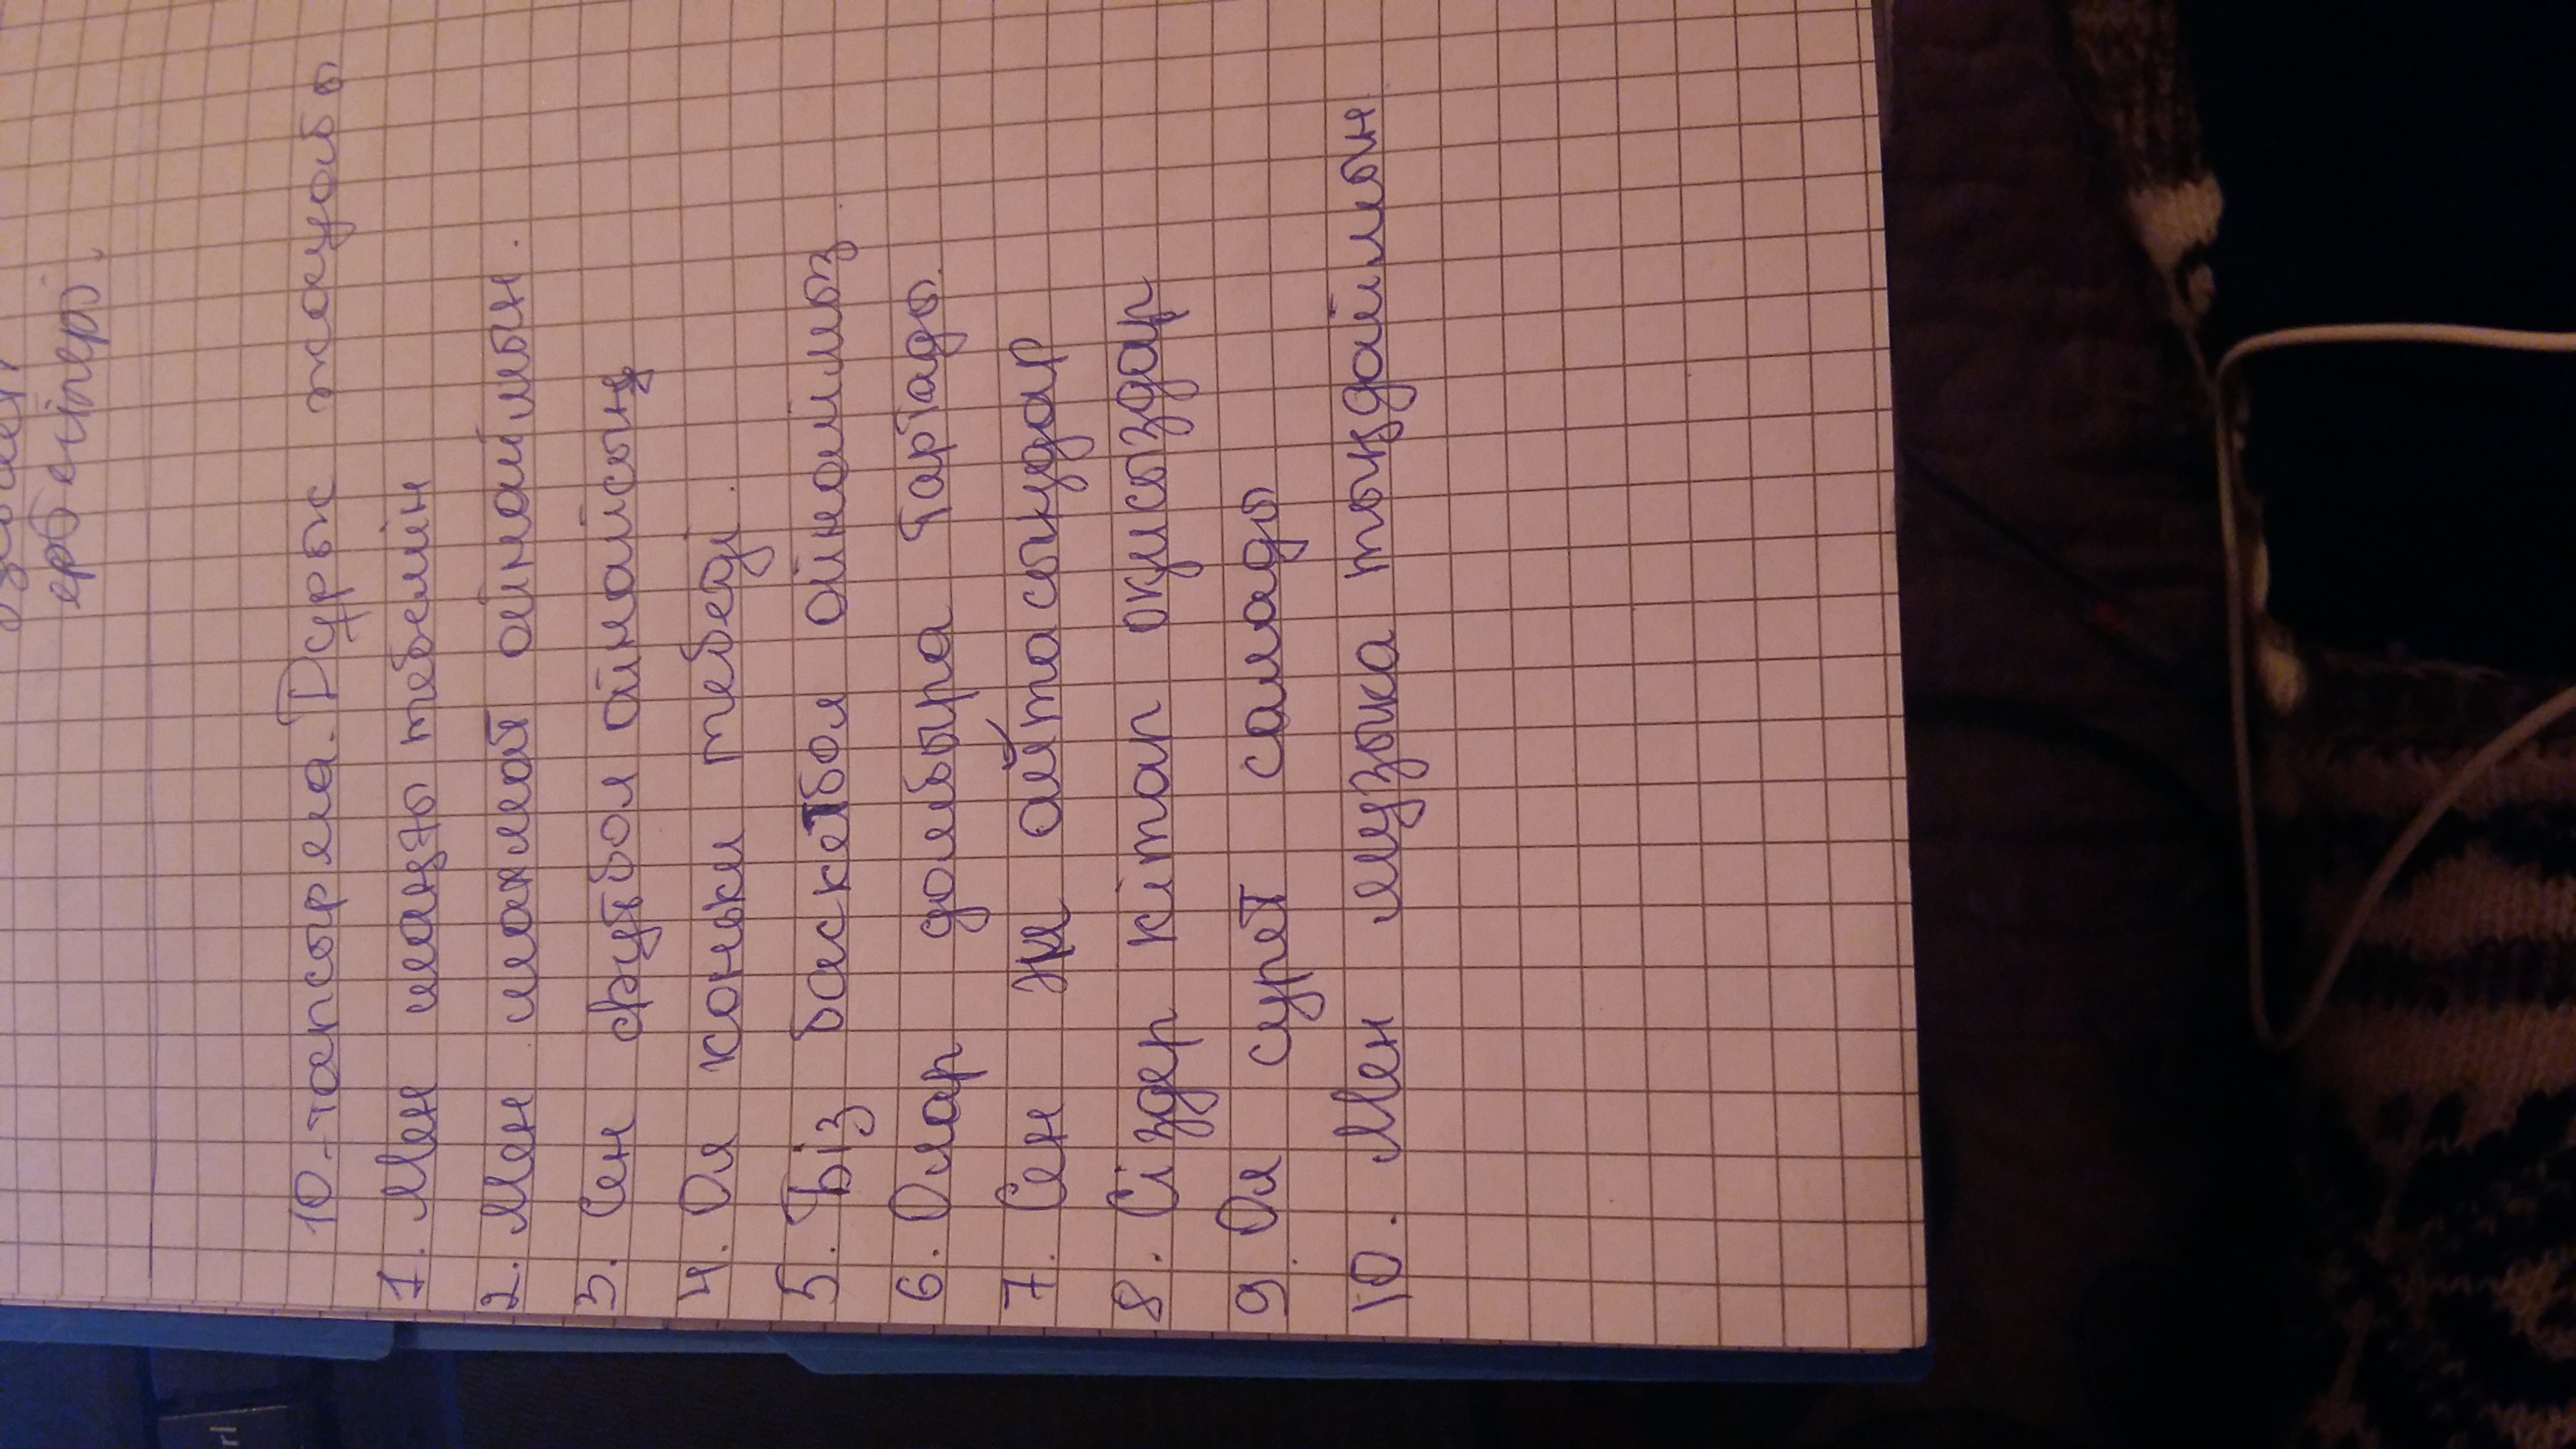 ербсінері.
10-тапсырма. Дұрыс жауабы
1. Мен шаңғы тебемін
2. Мен шахмат ойнаймын.
3. Сен футбол ойнайсың
4. Ол коньки тебеді.
5. Біз баскетбол ойнаймыз.
6. Олар домбыра тартады.
7. Сен ән айтасыңдар
8. Сіздер кітап окисыздар
9. Ол сурет салады
10. Мен музыка тыңдаймын.